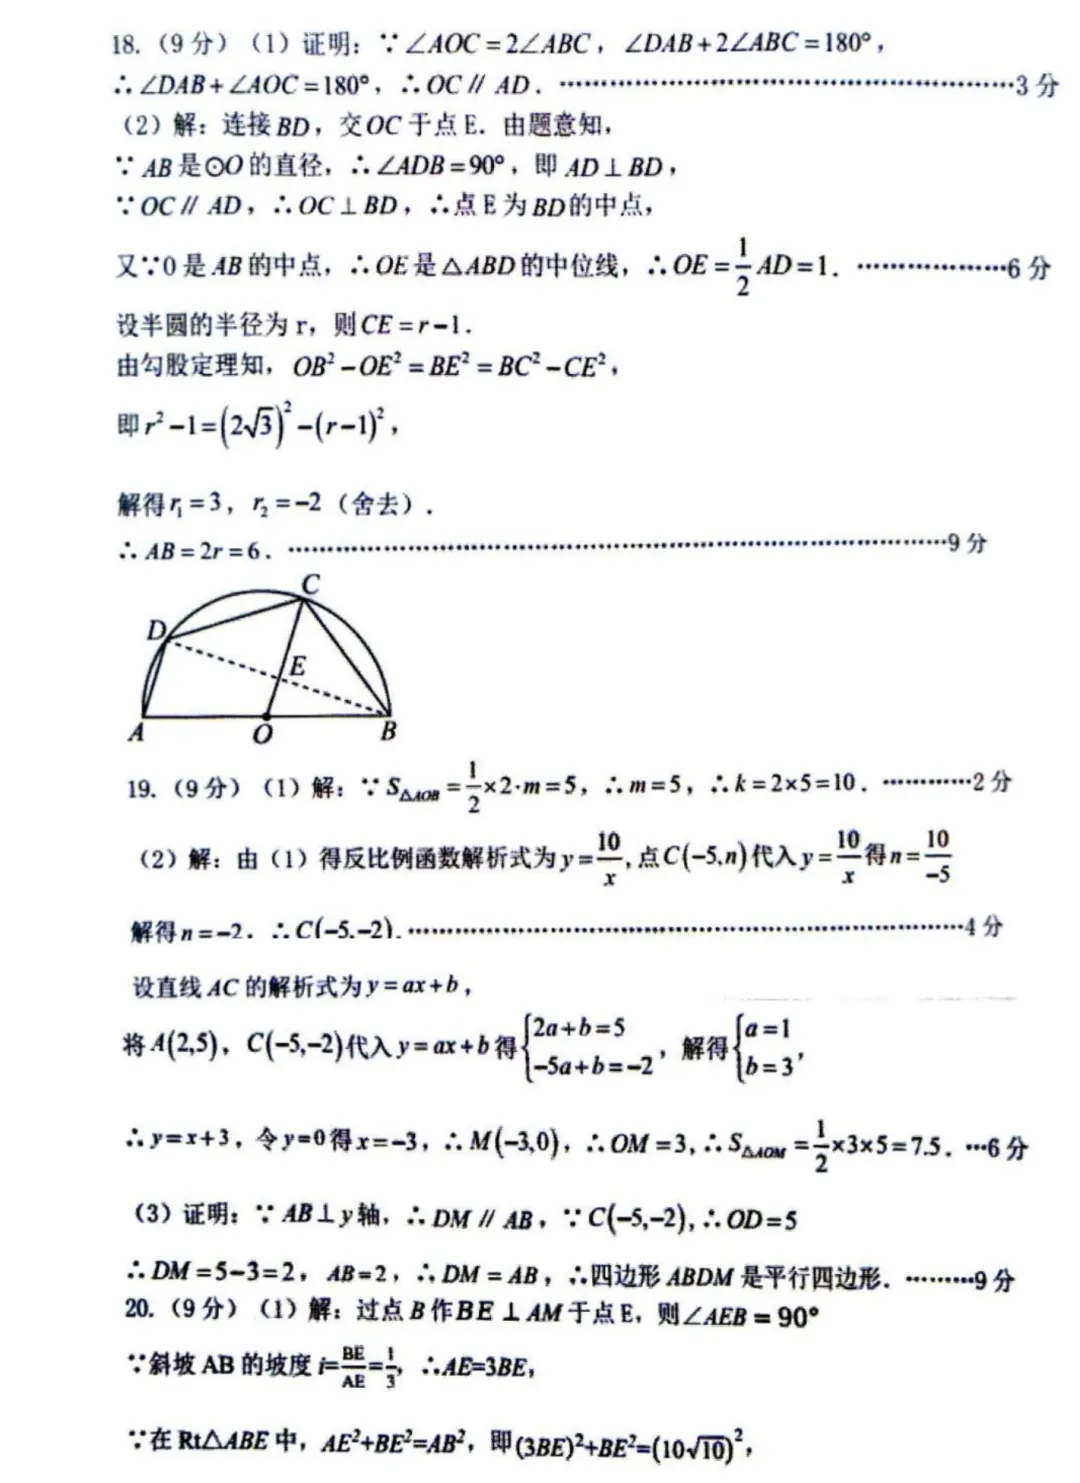 18.（9分）（1）证明：∵∠AOC=2∠ABC，∠DAB+2∠ABC=180°，
∴∠DAB+∠AOC=180°，∴OC∥AD．…………3分
（2）解：连接BD，交OC于点E．由题意知，
∵AB是⊙O的直径，∴∠ADB=90°，即AD⊥BD，
∵OC∥AD，∴OC⊥BD，∴点E为BD的中点，
又∵0是AB的中点，∴OE是△ABD的中位线，∴OE=1/2AD=1．…………6分
设半圆的半径为r，则CE=r−1．
由勾股定理知，OB²−OE²=BE²=BC²−CE²，
即r²−1=(2√3)²−(r−1)²，
解得r₁=3，r₂=−2（舍去）．
∴AB=2r=6．…………9分
C
D
E
A
O
B
19.（9分）（1）解：∵S△AOB=1/2×2·m=5，∴m=5，∴k=2×5=10．…………2分
（2）解：由（1）得反比例函数解析式为y=10/x,点C(−5,n)代入y=10/x得n=10/−5
解得n=−2．∴C(−5,−2).…………4分
设直线AC的解析式为y=ax+b，
将A(2,5)，C(−5,−2)代入y=ax+b得{2a+b=5 −5a+b=−2，解得{a=1 b=3，
∴y=x+3，令y=0得x=−3，∴M(−3,0)，∴OM=3,∴S△AOM=1/2×3×5=7.5．…6分
（3）证明：∵AB⊥y轴，∴DM∥AB，∵C(−5,−2),∴OD=5
∴DM=5−3=2，AB=2，∴DM=AB，∴四边形ABDM是平行四边形．………9分
20.（9分）（1）解：过点B作BE⊥AM于点E，则∠AEB=90°
∵斜坡AB的坡度i=BE/AE=1/3，∴AE=3BE，
∵在Rt△ABE中，AE²+BE²=AB²，即(3BE)²+BE²=(10√10)²，